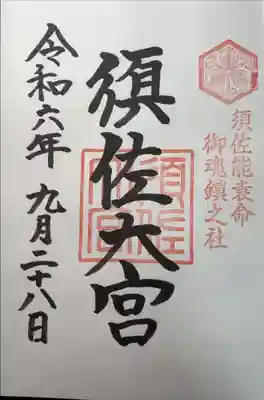 須佐能袁命
御魂鎮之社
須佐大宮
令和六年 九月二十八日